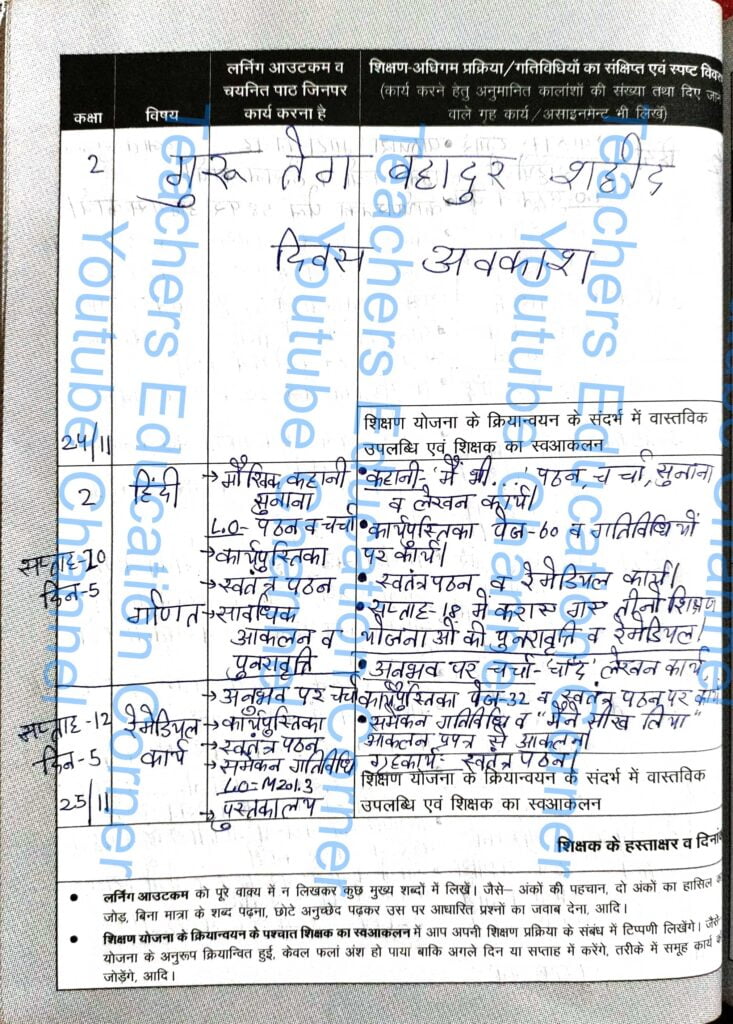 कक्षा
विषय
लर्निंग आउटकम व
चयनित पाठ जिनपर
कार्य करना है
शिक्षण-अधिगम प्रक्रिया/गतिविधियों का संक्षिप्त एवं स्पष्ट
(कार्य करने हेतु अनुमानित कालांशों की संख्या तथा दिए
वाले गृह कार्य/असाइनमेंट भी लिखें)
2
गुरू तेग बहादुर शहीद
दिवस अवकाश
24/11
शिक्षण योजना के क्रियान्वयन के संदर्भ में वास्तविक
उपलब्धि एवं शिक्षक का स्वआकलन
2
सप्ताह-20
दिन-5
हिंदी
→ मौखिक कहानी
सुनाना
LO- पठन व चर्चा
→ कार्यपुस्तिका
→ स्वतंत्र पठन
गणित → सावधिक
आकलन व
पुनरावृत्ति
• कहानी- 'मैं भी...' पठन, चर्चा, सुनाना
व लेखन कार्य।
• कार्यपुस्तिका पेज-60 व गतिविधियों
पर कार्य।
• स्वतंत्र पठन व रेमेडियल कार्य।
• सप्ताह-18 में कराए गए तीनो शिक्षण
योजनाओं की पुनरावृत्ति व रेमेडियल।
सप्ताह-12
दिन-5
25/11
रेमेडियल
कार्य
→ अनुभव पर चर्चा
→ कार्यपुस्तिका
→ स्वतंत्र पठन
→ समेकन गतिविधि
LO=M201.3
→ पुस्तकालय
• अनुभव पर चर्चा-'चाँद' लेखन कार्य,
कार्यपुस्तिका पेज-32 व स्वतंत्र पठन पर
• समेकन गतिविधि व "मैने सीख लिया"
आकलन प्रपत्र से आकलन।
गृहकार्य- स्वतंत्र पठन।
शिक्षण योजना के क्रियान्वयन के संदर्भ में वास्तविक
उपलब्धि एवं शिक्षक का स्वआकलन
शिक्षक के हस्ताक्षर व
• लर्निंग आउटकम को पूरे वाक्य में न लिखकर कुछ मुख्य शब्दों में लिखें। जैसे– अंकों की पहचान, दो अंकों का हासिल
जोड़, बिना मात्रा के शब्द पढ़ना, छोटे अनुच्छेद पढ़कर उस पर आधारित प्रश्नों का जवाब देना, आदि।
• शिक्षण योजना के क्रियान्वयन के पश्चात शिक्षक का स्वआकलन में आप अपनी शिक्षण प्रक्रिया के संबंध में टिप्पणी लिखेंगे।
योजना के अनुरूप क्रियान्वित हुई, केवल फलां अंश हो पाया बाकि अगले दिन या सप्ताह में करेंगे, तरीके में समूह कार्य
जोड़ेंगे, आदि।
Teachers Education Corner
Youtube Channel
Teachers Education Corner
Youtube Channel
Teachers Education Corner
Youtube Channel